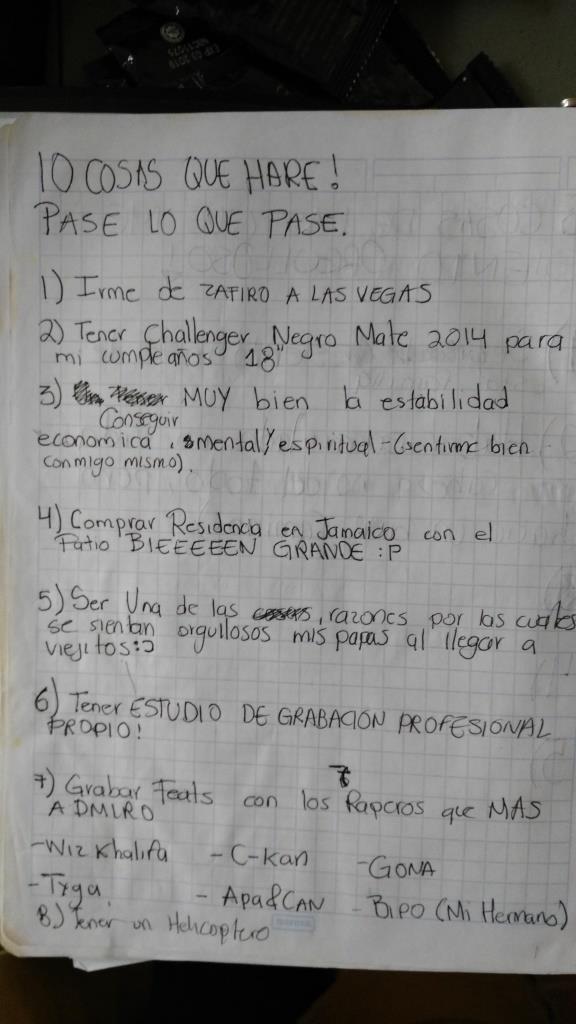 10 COSAS QUE HARE!
PASE LO QUE PASE.
1) Irme de ZAFIRO A LAS VEGAS
2) Tener Challenger Negro Mate 2014 para
mi cumpleaños 18"
3) MUY bien la estabilidad
Conseguir
economica, mental/espiritual-(sentirme bien
conmigo mismo).
4) Comprar Residencia en Jamaico con el
Patio BIEEEEEN GRANDE :P
5) Ser Una de las razones por las cuales
se sientan orgullosos mis papas al llegar a
viejitos:D
6) Tener ESTUDIO DE GRABACION PROFESIONAL
PROPIO!
7) Grabar Feats con los Raperos que MAS
ADMIRO
-Wiz Khalifa - C-Kan -GONA
-Tyga. - Apa&CAN - BIPO (Mi Hermano)
8) Tener un Helicoptero